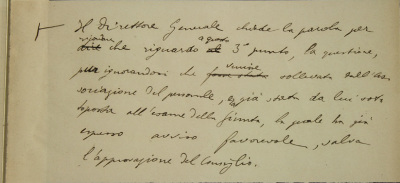 Il Direttore Generale chiede la parola per
dire che riguardo al 3° punto, la questione,
pur ignorandosi che venisse sollevata dall'As
sociazione del personale, è già stata da lui sotto
posta all'esame della Giunta, la quale ha già
espresso avviso favorevole, salva
l'approvazione del Consiglio.